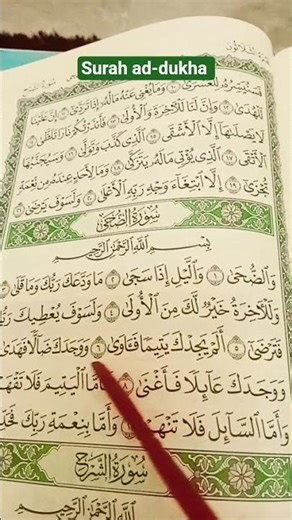 Surah ad-dukha
فَسَنُيَسِّرُهُۥ لِلْعُسْرَىٰ ١٠ وَمَا يُغْنِى عَنْهُ مَالُهُۥٓ إِذَا تَرَدَّىٰٓ ١١ إِنَّ عَلَيْنَا
لَلْهُدَىٰ ١٢ وَإِنَّ لَنَا لَلْءَاخِرَةَ وَٱلْأُولَىٰ ١٣ فَأَنذَرْتُكُمْ نَارًا تَلَظَّىٰ ١٤
لَا يَصْلَىٰهَآ إِلَّا ٱلْأَشْقَى ١٥ ٱلَّذِى كَذَّبَ وَتَوَلَّىٰ ١٦ وَسَيُجَنَّبُهَا
ٱلْأَتْقَى ١٧ ٱلَّذِى يُؤْتِى مَالَهُۥ يَتَزَكَّىٰ ١٨ وَمَا لِأَحَدٍ عِندَهُۥ مِن نِّعْمَةٍ
تُجْزَىٰٓ ١٩ إِلَّا ٱبْتِغَآءَ وَجْهِ رَبِّهِ ٱلْأَعْلَىٰ ٢٠ وَلَسَوْفَ يَرْضَىٰ ٢١
سُورَةُ الضُّحَىٰ
بِسْمِ ٱللَّهِ ٱلرَّحْمَٰنِ ٱلرَّحِيمِ
وَٱلضُّحَىٰ ١ وَٱلَّيْلِ إِذَا سَجَىٰ ٢ مَا وَدَّعَكَ رَبُّكَ وَمَا قَلَىٰ ٣
وَلَلْءَاخِرَةُ خَيْرٌ لَّكَ مِنَ ٱلْأُولَىٰ ٤ وَلَسَوْفَ يُعْطِيكَ
فَتَرْضَىٰٓ ٥ أَلَمْ يَجِدْكَ يَتِيمًا فَـَٔاوَىٰ ٦ وَوَجَدَكَ ضَآلًّا فَهَدَىٰ
وَوَجَدَكَ عَآئِلًا فَأَغْنَىٰ ٨ فَأَمَّا ٱلْيَتِيمَ فَلَا تَقْهَرْ
وَأَمَّا ٱلسَّآئِلَ فَلَا تَنْهَرْ وَأَمَّا بِنِعْمَةِ رَبِّكَ
سُورَةُ الشَّرْحِ
ٱللَّهِ ٱلرَّحْمَٰنِ ٱلرَّحِيمِ